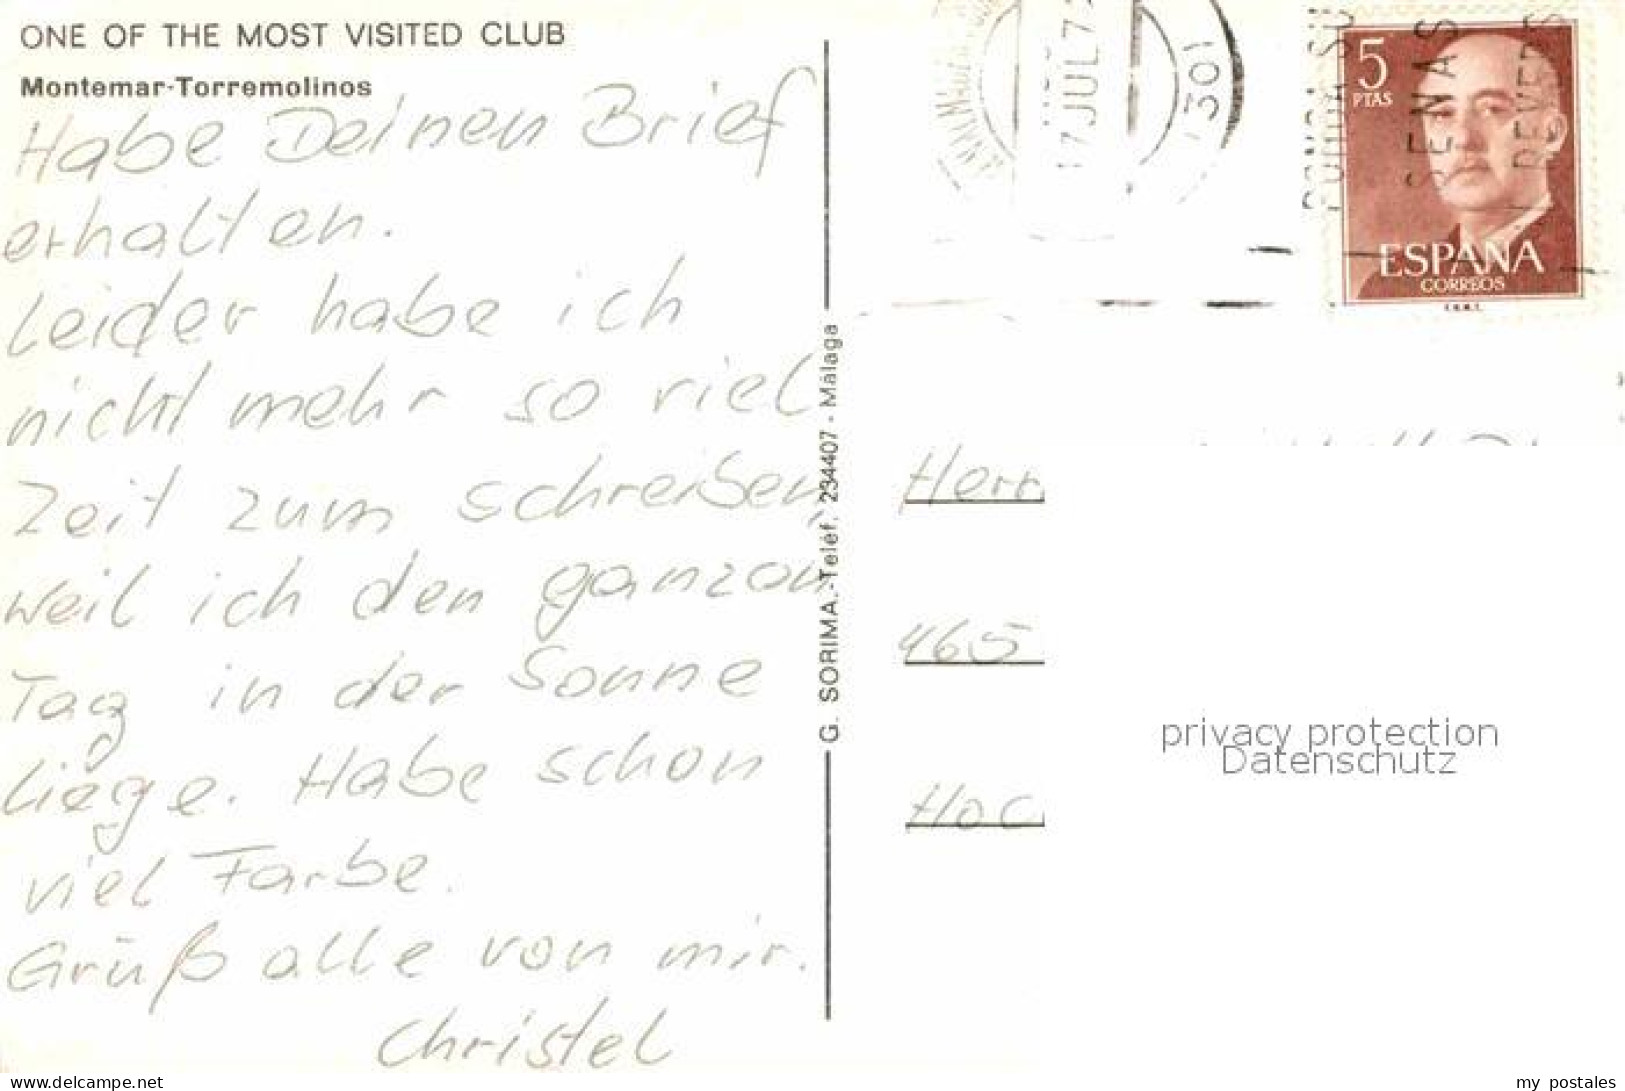 ONE OF THE MOST VISITED CLUB
Montemar-Torremolinos
Habe Deinen Brief
erhalten.
Leider habe ich
nicht mehr so viel
Zeit zum schreiben,
weil ich den ganzen
Tag in der Sonne
liege. Habe schon
viel Farbe.
Grüß alle von mir.
Christel
G. SORIMA.-Teléf. 234407 - Málaga
17 JUL 7
1301
SENAS
5
PTAS
ESPAÑA
CORREOS
Herrn
465
Hoc
privacy protection
Datenschutz
www.delcampe.net
my_postales